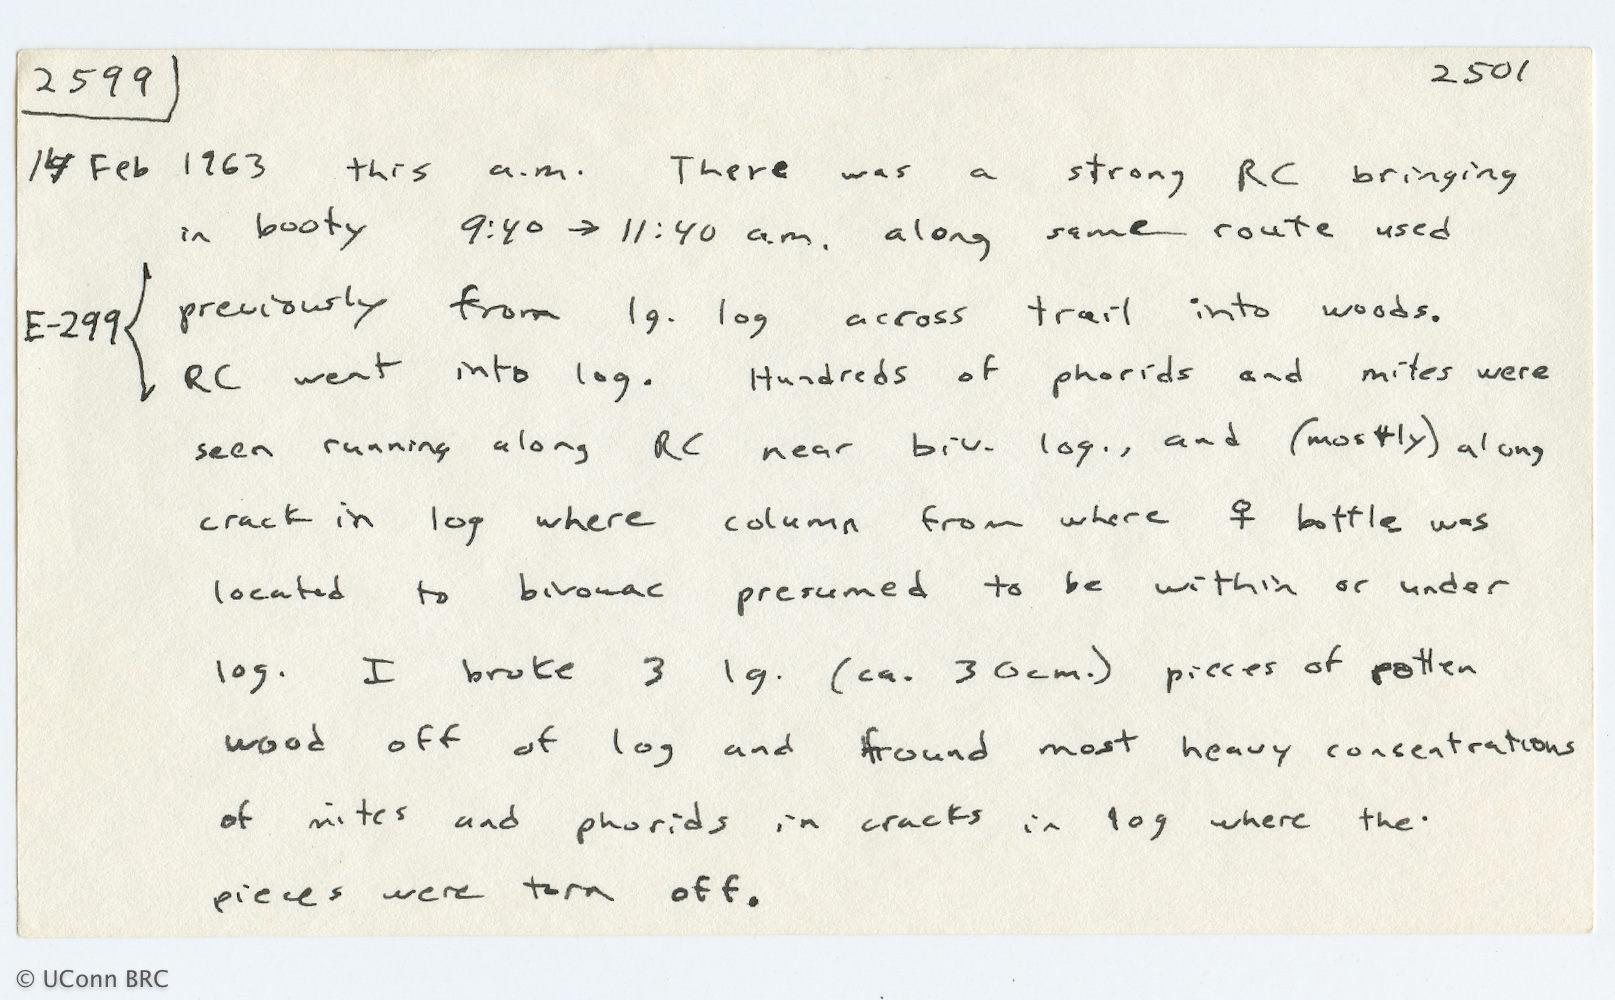 2599
2501
Feb 1963 this a.m. There was a strong RC bringing
in booty 9:40 → 11:40 a.m. along same route used
E-299
previously from lg. log across trail into woods.
RC went into log. Hundreds of phorids and mites were
seen running along RC near biv. log., and (mostly) along
crack in log where column from where ♀ bottle was
located to bivouac presumed to be within or under
log. I broke 3 lg. (ca. 30cm.) pieces of rotten
wood off of log and found most heavy concentrations
of mites and phorids in cracks in log where the
pieces were torn off.
© UConn BRC